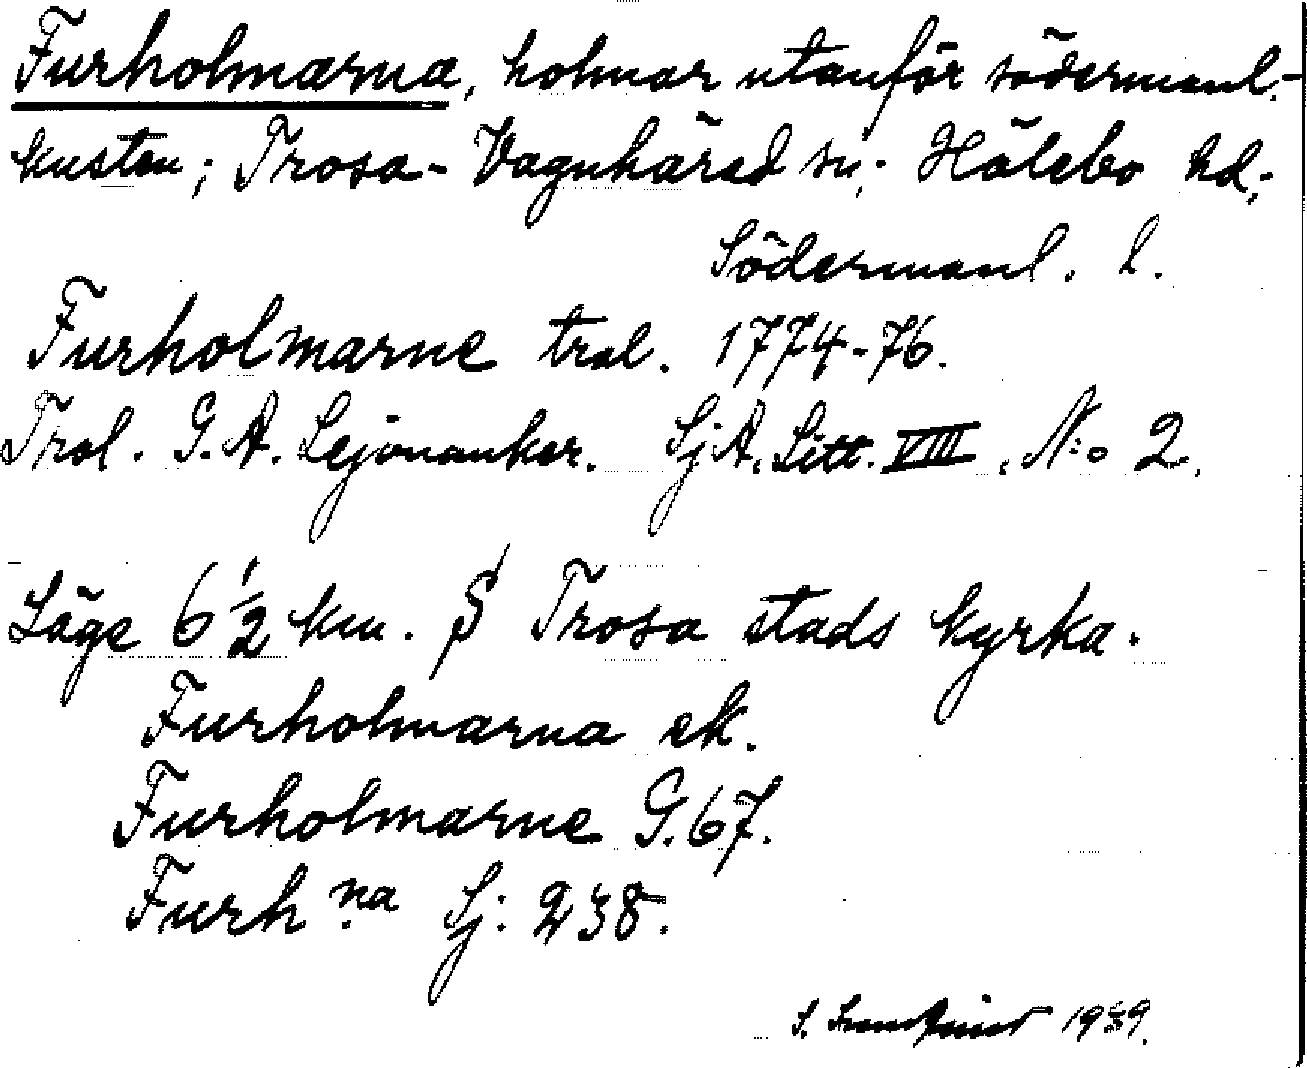 Furholmarna, holmar utanför södermanl.-
kusten; Trosa-Vagnhärad sn; Hölebo hd;
Södermanl. l.
Furholmarne tral. 1774-76.
Tral. G. A. Lejonanker. SjA. Litt. VIII. N:o 2.
Läge 6 1/2 km. S Trosa stads kyrka.
Furholmarna ek.
Furholmarne G. 67.
Furh na Sj: 238.
S. 1939.